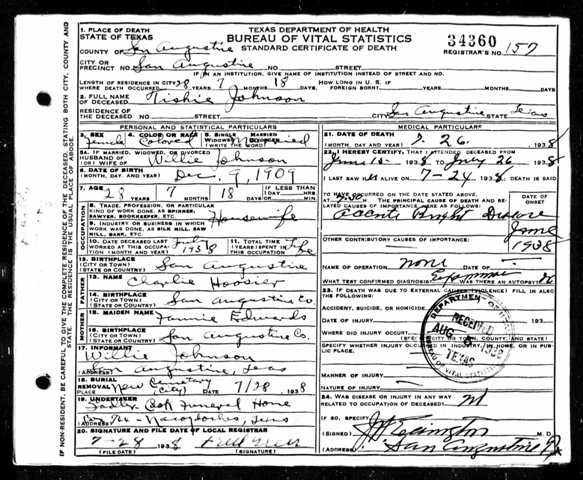 1. PLACE OF DEATH
STATE OF TEXAS
TEXAS DEPARTMENT OF HEALTH
BUREAU OF VITAL STATISTICS
STANDARD CERTIFICATE OF DEATH
34360
REGISTRAR'S NO. 157
COUNTY OF San Augustine
CITY OR PRECINCT NO. San Augustine NO. STREET
IF IN AN INSTITUTION, GIVE NAME OF INSTITUTION INSTEAD OF STREET AND NO.
LENGTH OF RESIDENCE WHERE DEATH OCCURRED 28 YEARS 7 MONTHS 18 DAYS HOW LONG IN U. S. IF FOREIGN BORN? YEARS MONTHS DAYS
2. FULL NAME OF DECEASED Johnson
CITY San Augustine STATE Texas
PERSONAL AND STATISTICAL PARTICULARS
MEDICAL PARTICULARS
3. SEX Female 4. COLOR OR RACE Colored 5. SINGLE MARRIED WIDOWED DIVORCED (WRITE THE WORD) Married
5A. IF MARRIED, WIDOWED, OR DIVORCED HUSBAND OF (OR) WIFE OF Willie Johnson
6. DATE OF BIRTH (MONTH, DAY, AND YEAR) Dec. 9, 1909
7. AGE 28 YEARS 7 MONTHS 18 DAYS IF LESS THAN 1 DAY HRS. MIN.
8. TRADE, PROFESSION, OR PARTICULAR KIND OF WORK DONE, AS SPINNER, SAWYER, BOOKKEEPER, ETC. Housewife
9. INDUSTRY OR BUSINESS IN WHICH WORK WAS DONE, AS SILK MILL, SAW MILL, BANK, ETC.
10. DATE DECEASED LAST WORKED AT THIS OCCUPATION July 1938 11. TOTAL TIME (YEARS) SPENT IN THIS OCCUPATION Life
12. BIRTHPLACE (CITY OR TOWN) (STATE OR COUNTRY) San Augustine
FATHER
13. NAME Charlie Hoosier
14. BIRTHPLACE (CITY OR TOWN) (STATE OR COUNTRY) San Augustine Co.
MOTHER
15. MAIDEN NAME Fannie Edwards
16. BIRTHPLACE (CITY OR TOWN) (STATE OR COUNTRY) San Augustine Co.
17. INFORMANT Willie Johnson
San Augustine, Texas
18. BURIAL REMOVAL New Cemetery (City) 7/28 1938
19. UNDERTAKER Funeral Home
Nacogdoches, Texas
20. SIGNATURE AND FILE DATE OF LOCAL REGISTRAR
7-28 1938
(FILE DATE) (SIGNATURE)
21. DATE OF DEATH (MONTH, DAY, AND YEAR) 7 26 1938
22. I HEREBY CERTIFY, THAT I ATTENDED DECEASED FROM
June 15 1938 TO July 26 1938
I LAST SAW HER ALIVE ON 7-24 1938 DEATH IS SAID
TO HAVE OCCURRED ON THE DATE STATED ABOVE, AT
THE PRINCIPAL CAUSE OF DEATH AND RELATED CAUSES OF IMPORTANCE WERE AS FOLLOWS:
DATE OF ONSET
Acute Bright Disease
June 1938
OTHER CONTRIBUTORY CAUSES OF IMPORTANCE:
NAME OF OPERATION none
WHAT TEST CONFIRMED DIAGNOSIS? WAS THERE AN AUTOPSY?
23. IF DEATH WAS DUE TO EXTERNAL CAUSES (VIOLENCE) FILL IN ALSO THE FOLLOWING:
ACCIDENT, SUICIDE, OR HOMICIDE
DATE OF INJURY 19
WHERE DID INJURY OCCUR? (CITY OR TOWN, COUNTY, AND STATE)
SPECIFY WHETHER INJURY OCCURRED IN INDUSTRY, IN HOME, OR IN PUBLIC PLACE.
MANNER OF INJURY
NATURE OF INJURY
24. WAS DISEASE OR INJURY IN ANY WAY RELATED TO OCCUPATION OF DECEASED?
IF SO, SPECIFY
(SIGNED) M. D.
San Augustine
DEPARTMENT OF HEALTH
RECEIVED
AUG 1938
TEXAS
BUREAU OF VITAL STATISTICS